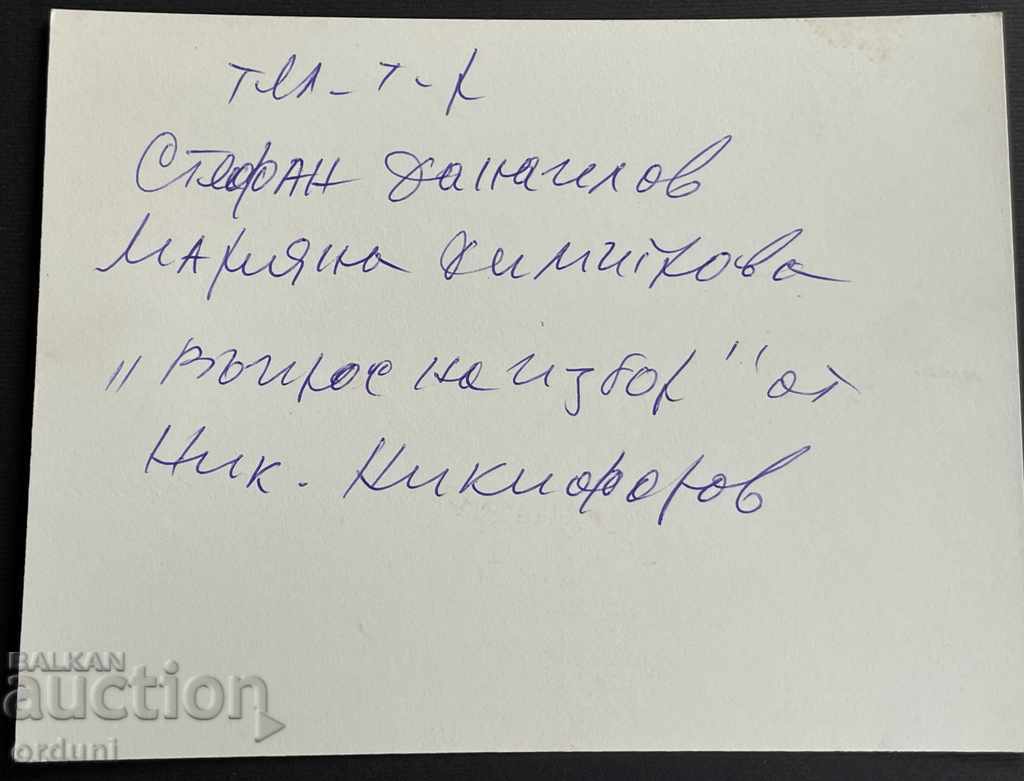 тел-т-р
Стефан Данаилов
Марияна Димитрова
„Въпрос на избор" от
Ник. Никифоров
BALKAN
auction
orduni